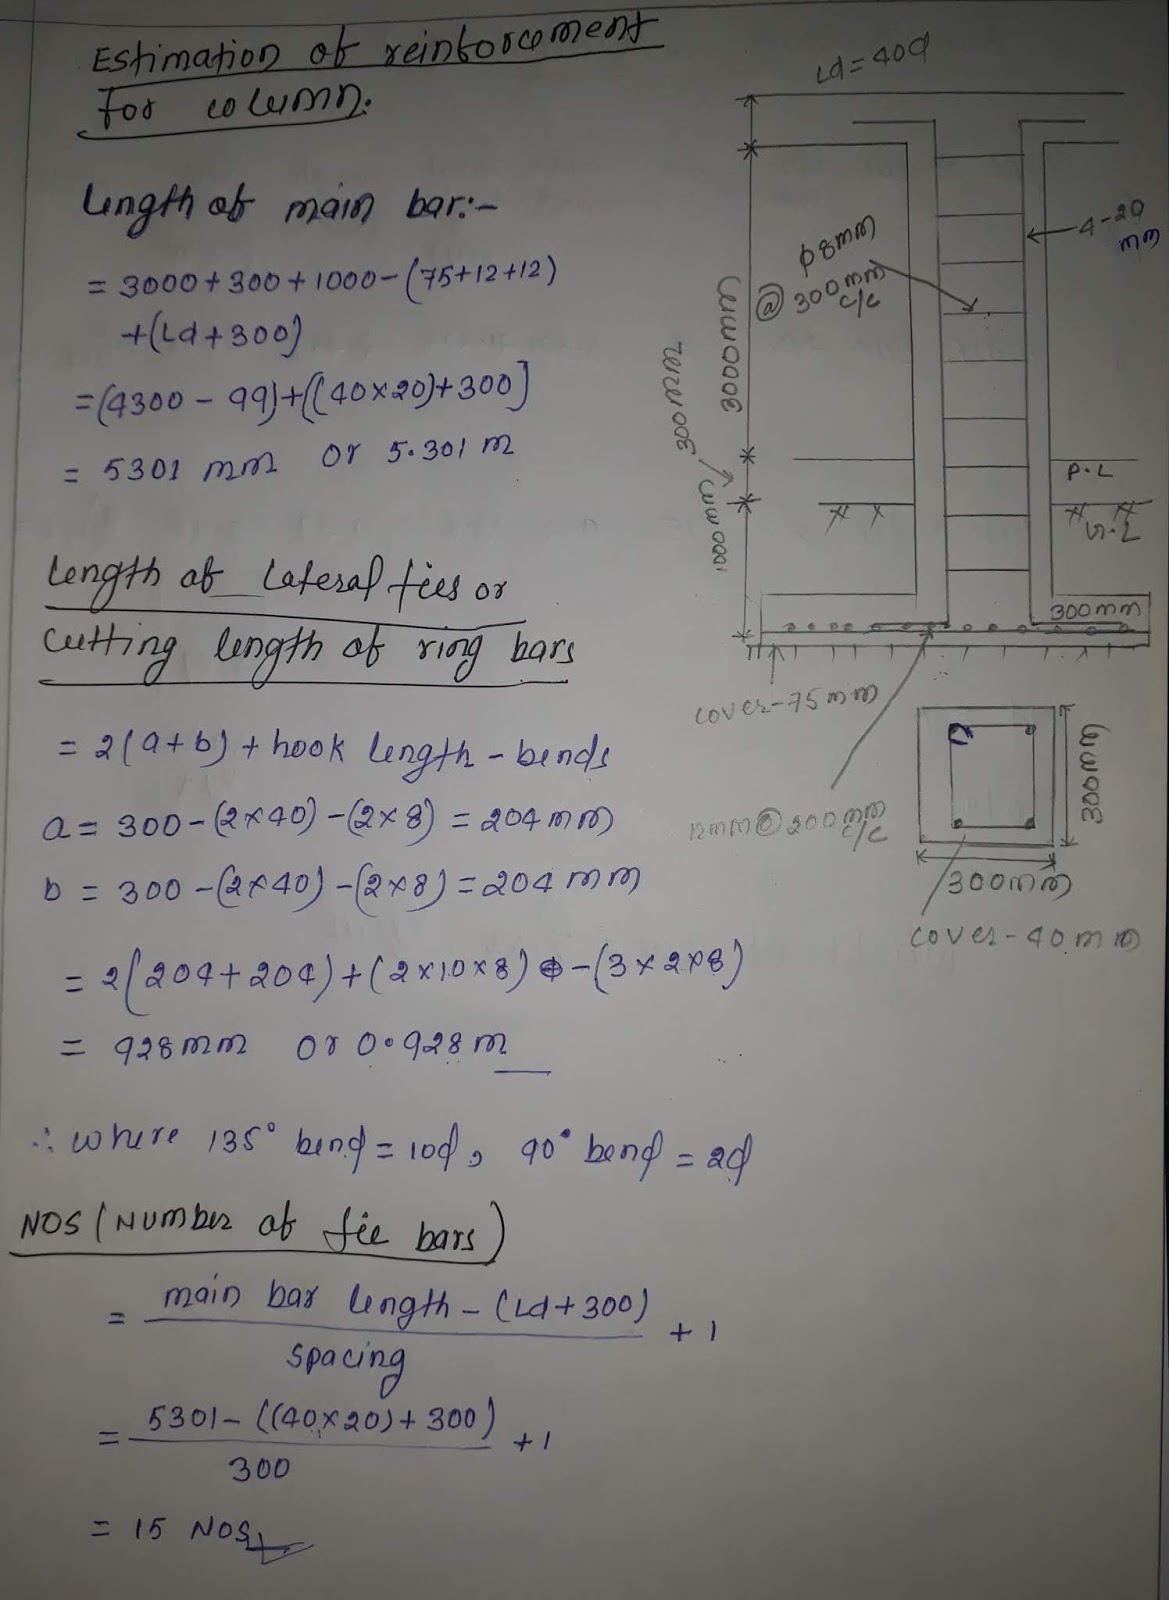 Estimation of reinforcement
for column.
Length of main bar:-
= 3000+300+1000-(75+12+12)
+(Ld+300)
=(4300-99)+[(40×20)+300]
= 5301 mm or 5.301 m
Length of Lateral ties or
cutting length of ring bars
= 2(a+b) + hook length - bends
a = 300-(2×40)-(2×8) = 204mm
b = 300-(2×40)-(2×8) = 204mm
= 2(204+204)+(2×10×8) -(3×2×8)
= 928mm or 0.928m
∴ where 135° bend = 10ϕ, 90° bend = 2ϕ
NOS (Number of tie bars)
= main bar length - (Ld+300)
spacing
+ 1
= 5301-((40×20)+300)
300
+1
= 15 NOS
Ld = 40ϕ
ϕ8mm
@ 300mm
c/c
4-20
mm
3000mm
300mm
1000mm
P.L
G.L
300mm
cover-75mm
12mm@200mm
c/c
300mm
300mm
cover-40mm